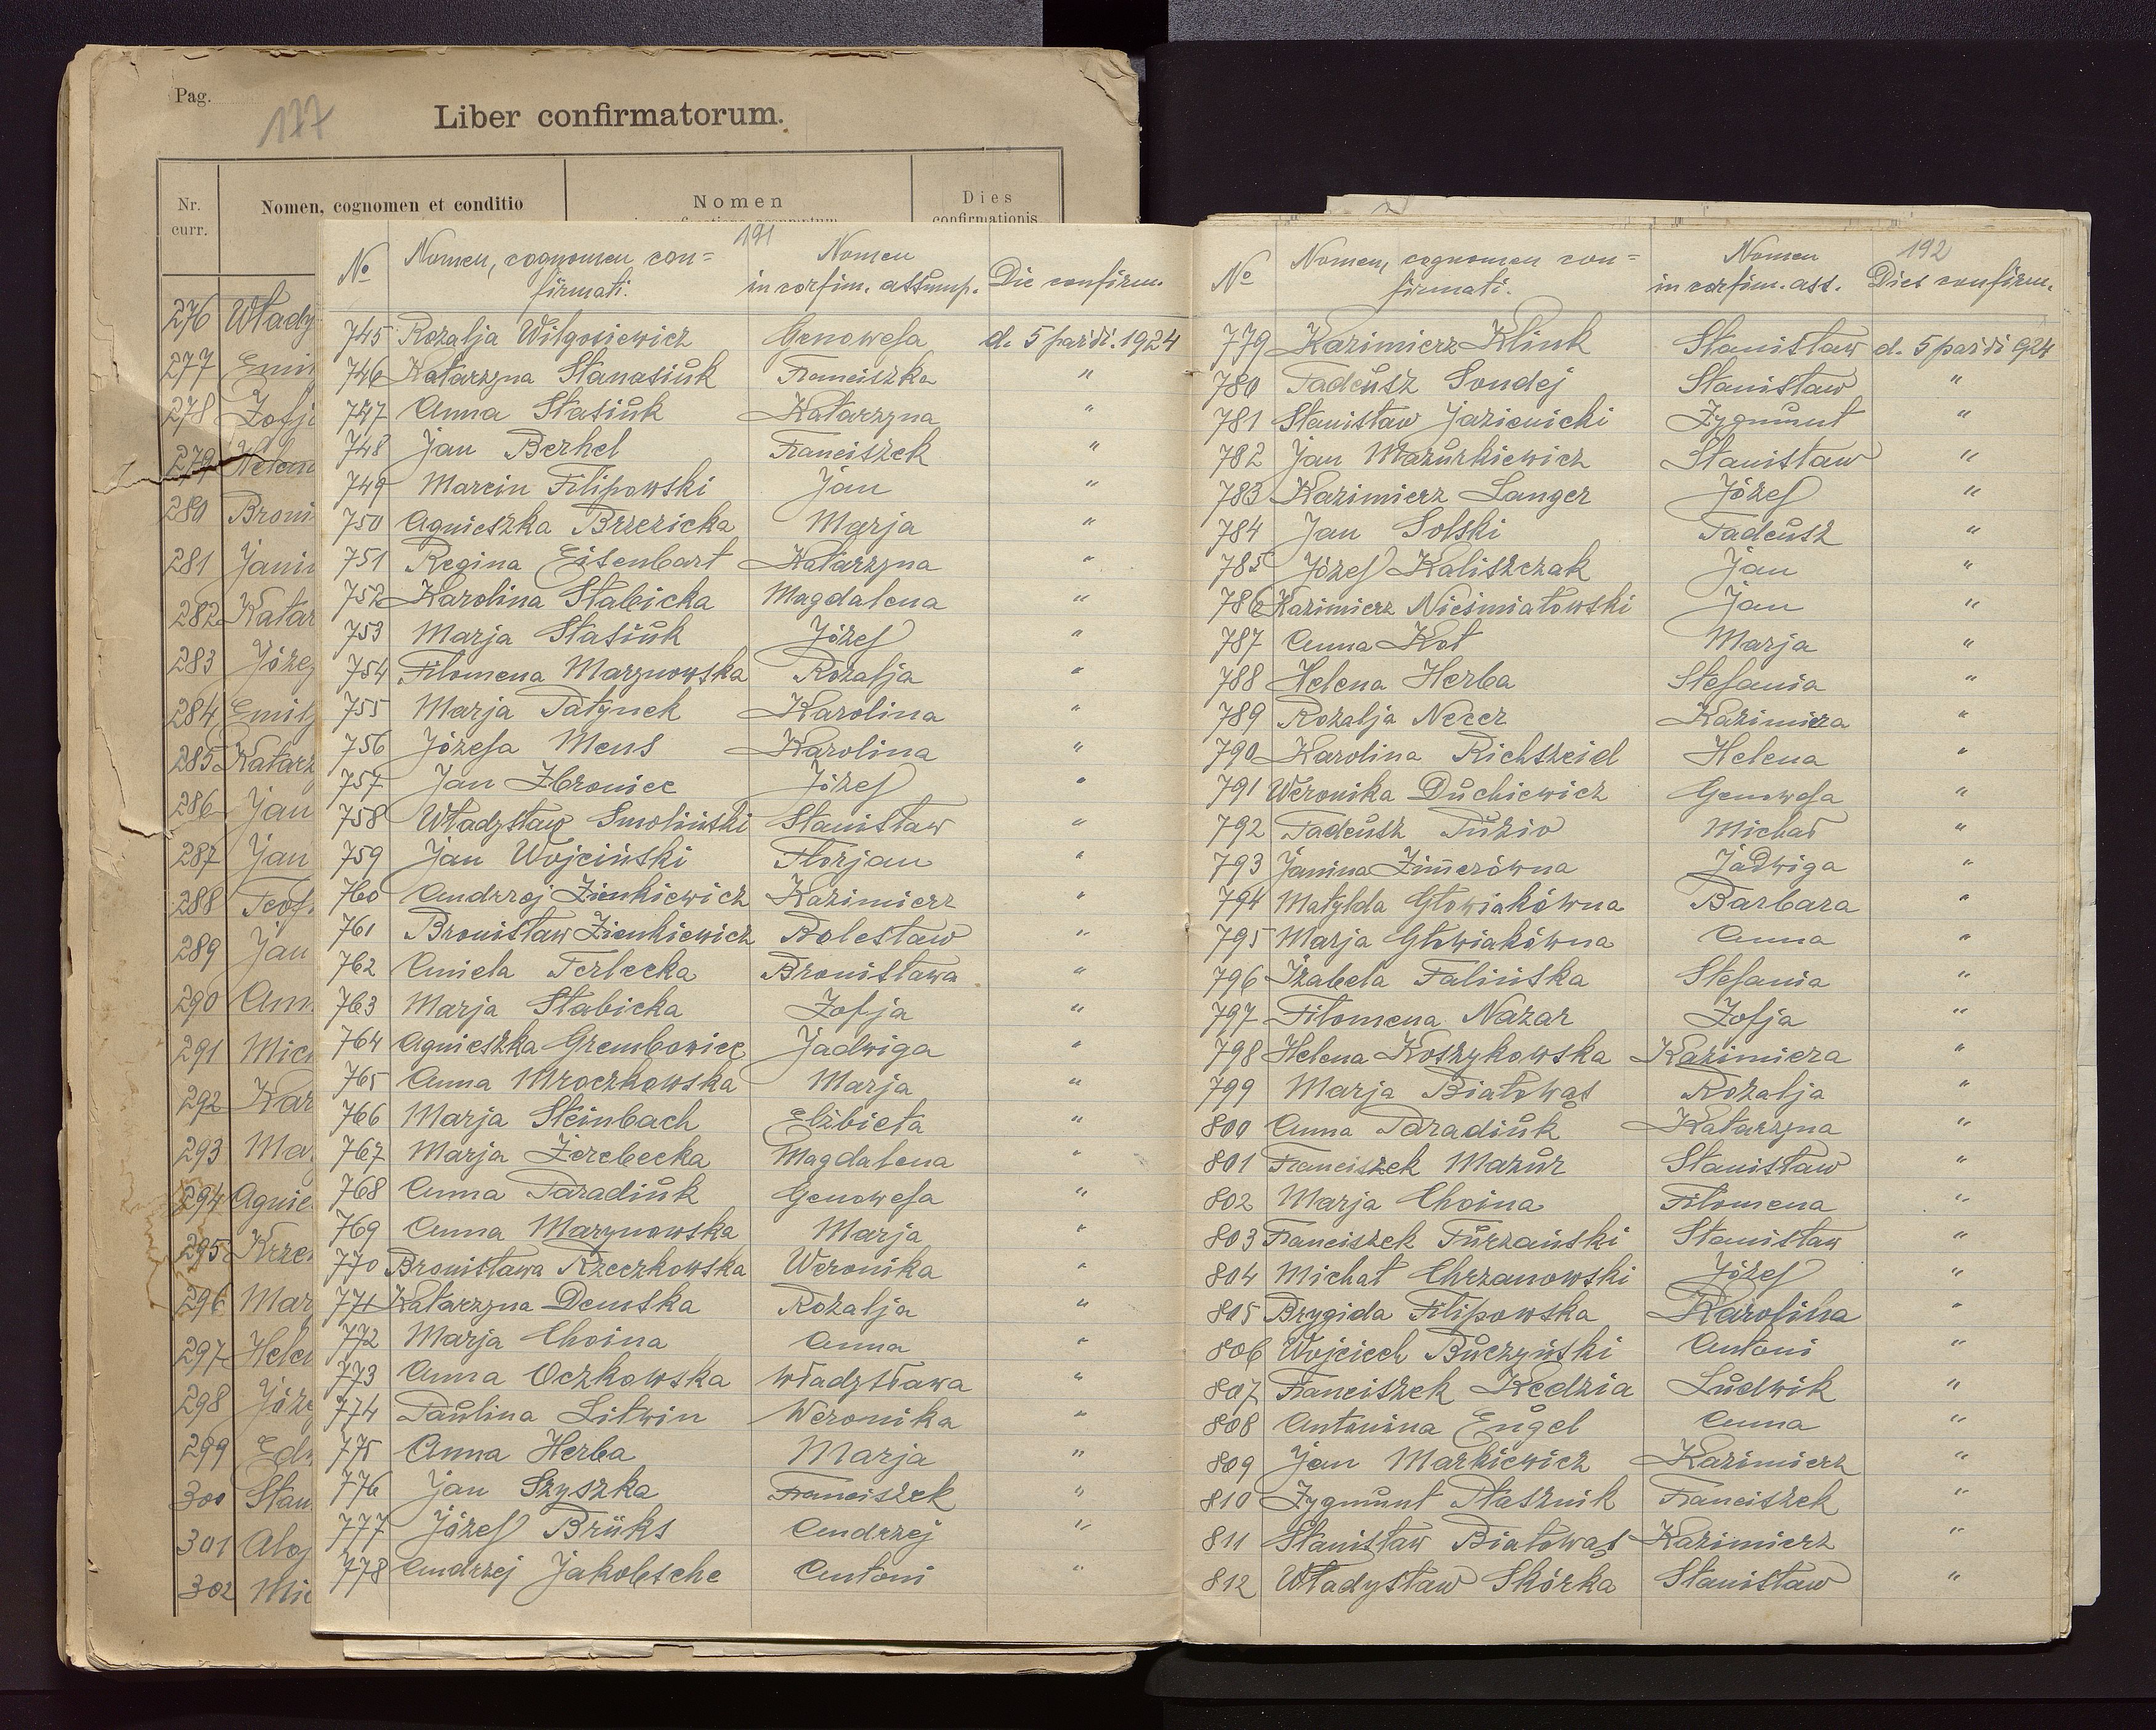 Pag.
177
Liber confirmatorum.
Nr. curr.
Nomen, cognomen et conditio
Nomen
Dies confirmationis
276 Włady
277 Emi
278 Zofj
279 Helen
280 Broni
281 Jani
282 Katar
283 Józe
284 Emil
285 Katarz
286 Jan
287 Jan
288 Teof
289 Jan
290 Ann
291 Mic
292 Kar
293 Mar
294 Agnie
295 Krze
296 Mar
297 Hele
298 Józe
299 Ed
300 Stan
301 Aloj
302 Mic
191
No Nomen, cognomen con= firmati. Nomen in corfim. assump. Die confirm.
745 Rozalja Wilgosiewicz Genowefa d. 5 paźdź. 1924
746 Katarzyna Stanasiuk Franciszka "
747 Anna Stasiuk Katarzyna "
748 Jan Berkel Franciszek "
749 Marcin Filipowski Jan "
750 Agnieszka Brzezicka Marja "
751 Regina Eisenbart Katarzyna "
752 Karolina Słabicka Magdalena "
753 Marja Stasiuk Józef "
754 Filomena Marynowska Rozalja "
755 Marja Patynek Karolina "
756 Józefa Meus Karolina "
757 Jan Zbroniec Józef "
758 Władysław Smoliński Stanisław "
759 Jan Wojciński Florjan "
760 Andrzej Zienkiewicz Kazimierz "
761 Bronisław Zienkiewicz Bolesław "
762 Aniela Terlecka Bronisława "
763 Marja Słabicka Zofja "
764 Agnieszka Grembowiec Jadwiga "
765 Anna Mroczkowska Marja "
766 Marja Steinbach Elżbieta "
767 Marja Żerebecka Magdalena "
768 Anna Paradiuk Genowefa "
769 Anna Marynowska Marja "
770 Bronisława Rzeczkowska Weronika "
771 Katarzyna Demska Rozalja "
772 Marja Choina Anna "
773 Anna Oczkowska Władysława "
774 Paulina Litwin Weronika "
775 Anna Herba Marja "
776 Jan Szyszka Franciszek "
777 Józef Brüks Andrzej "
778 Andrzej Jakobsche Antoni "
192
No Nomen, cognomen con= firmati. Nomen in corfim. ass. Dies confirm.
779 Kazimierz Klink Stanisław d. 5 paźdź 924
780 Tadeusz Sondej Stanisław "
781 Stanisław Jazienicki Zygmunt "
782 Jan Mazurkiewicz Stanisław "
783 Kazimierz Langer Józef "
784 Jan Solski Tadeusz "
785 Józef Kaliszczak Jan "
786 Kazimierz Nieśmiałowski Jan "
787 Anna Kot Marja "
788 Helena Herba Stefania "
789 Rozalja Necer Kazimiera "
790 Karolina Richszeid Helena "
791 Weronika Duchiewicz Genowefa "
792 Tadeusz Puzio Michał "
793 Janina Zim̄erówna Jadwiga "
794 Matylda Głowiakówna Barbara "
795 Marja Głowiakówna Anna "
796 Izabela Falińska Stefania "
797 Filomena Nazar Zofja "
798 Helena Koszykowska Kazimiera "
799 Marja Białowąs Rozalja "
800 Anna Paradiuk Katarzyna "
801 Franciszek Mazur Stanisław "
802 Marja Choina Filomena "
803 Franciszek Furzański Stanisław "
804 Michał Chrzanowski Józef "
805 Brygida Filipowska Karolina "
806 Wojciech Buczyński Antoni "
807 Franciszek Kędzia Ludwik "
808 Antonina Engel Anna "
809 Jan Markiewicz Kazimierz "
810 Zygmunt Ptasznik Franciszek "
811 Stanisław Białowąs Kazimierz "
812 Władysław Skórka Stanisław "